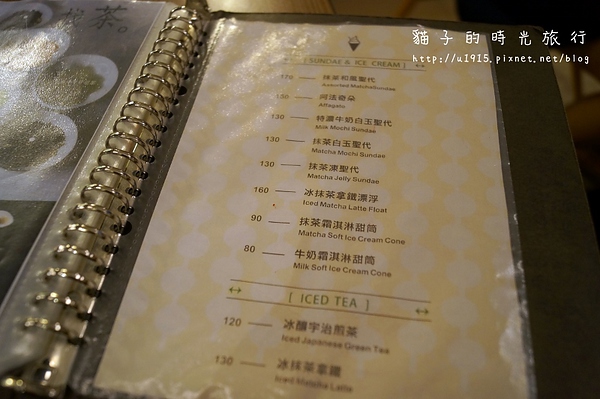 貓子的時光旅行
http://u1915.pixnet.net/blog
茶。
[ SUNDAE & ICE CREAM ]
170 — 抹茶和風聖代
Assorted MatchaSundae
130 — 阿法奇朵
Affagato
130 — 特濃牛奶白玉聖代
Milk Mochi Sundae
130 — 抹茶白玉聖代
Matcha Mochi Sundae
130 — 抹茶凍聖代
Matcha Jelly Sundae
160 — 冰抹茶拿鐵漂浮
Iced Matcha Latte Float
90 — 抹茶霜淇淋甜筒
Matcha Soft Ice Cream Cone
80 — 牛奶霜淇淋甜筒
Milk Soft Ice Cream Cone
[ ICED TEA ]
120 — 冰釀宇治煎茶
Iced Japanese Green Tea
130 — 冰抹茶拿鐵
Iced Matcha Latte